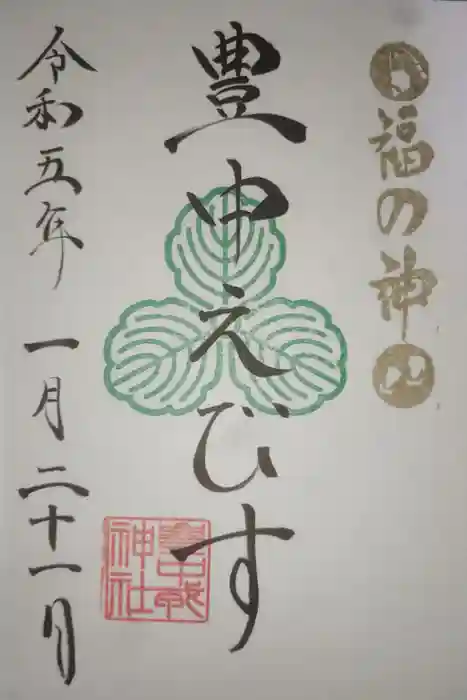 福の神
豊中えびす
豊中戎神社
令和五年 一月二十一日